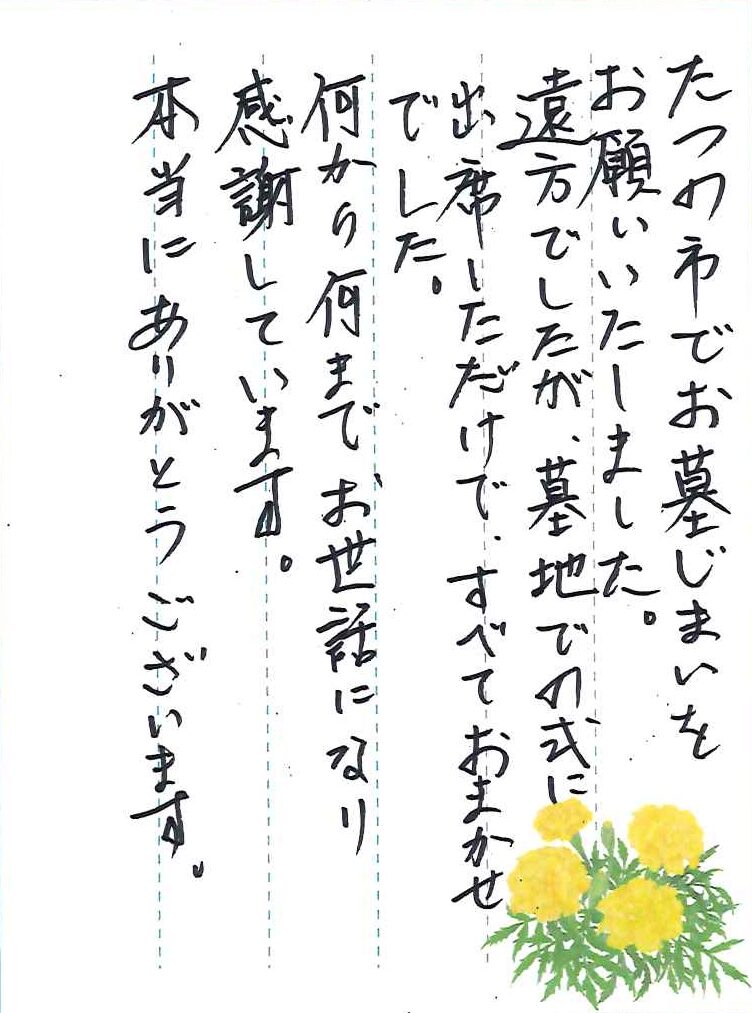 たつの市でお墓じまいを
お願いいたしました。
遠方でしたが、墓地での式に
出席しただけで、すべておまかせ
でした。
何から何までお世話になり
感謝しています。
本当にありがとうございます。